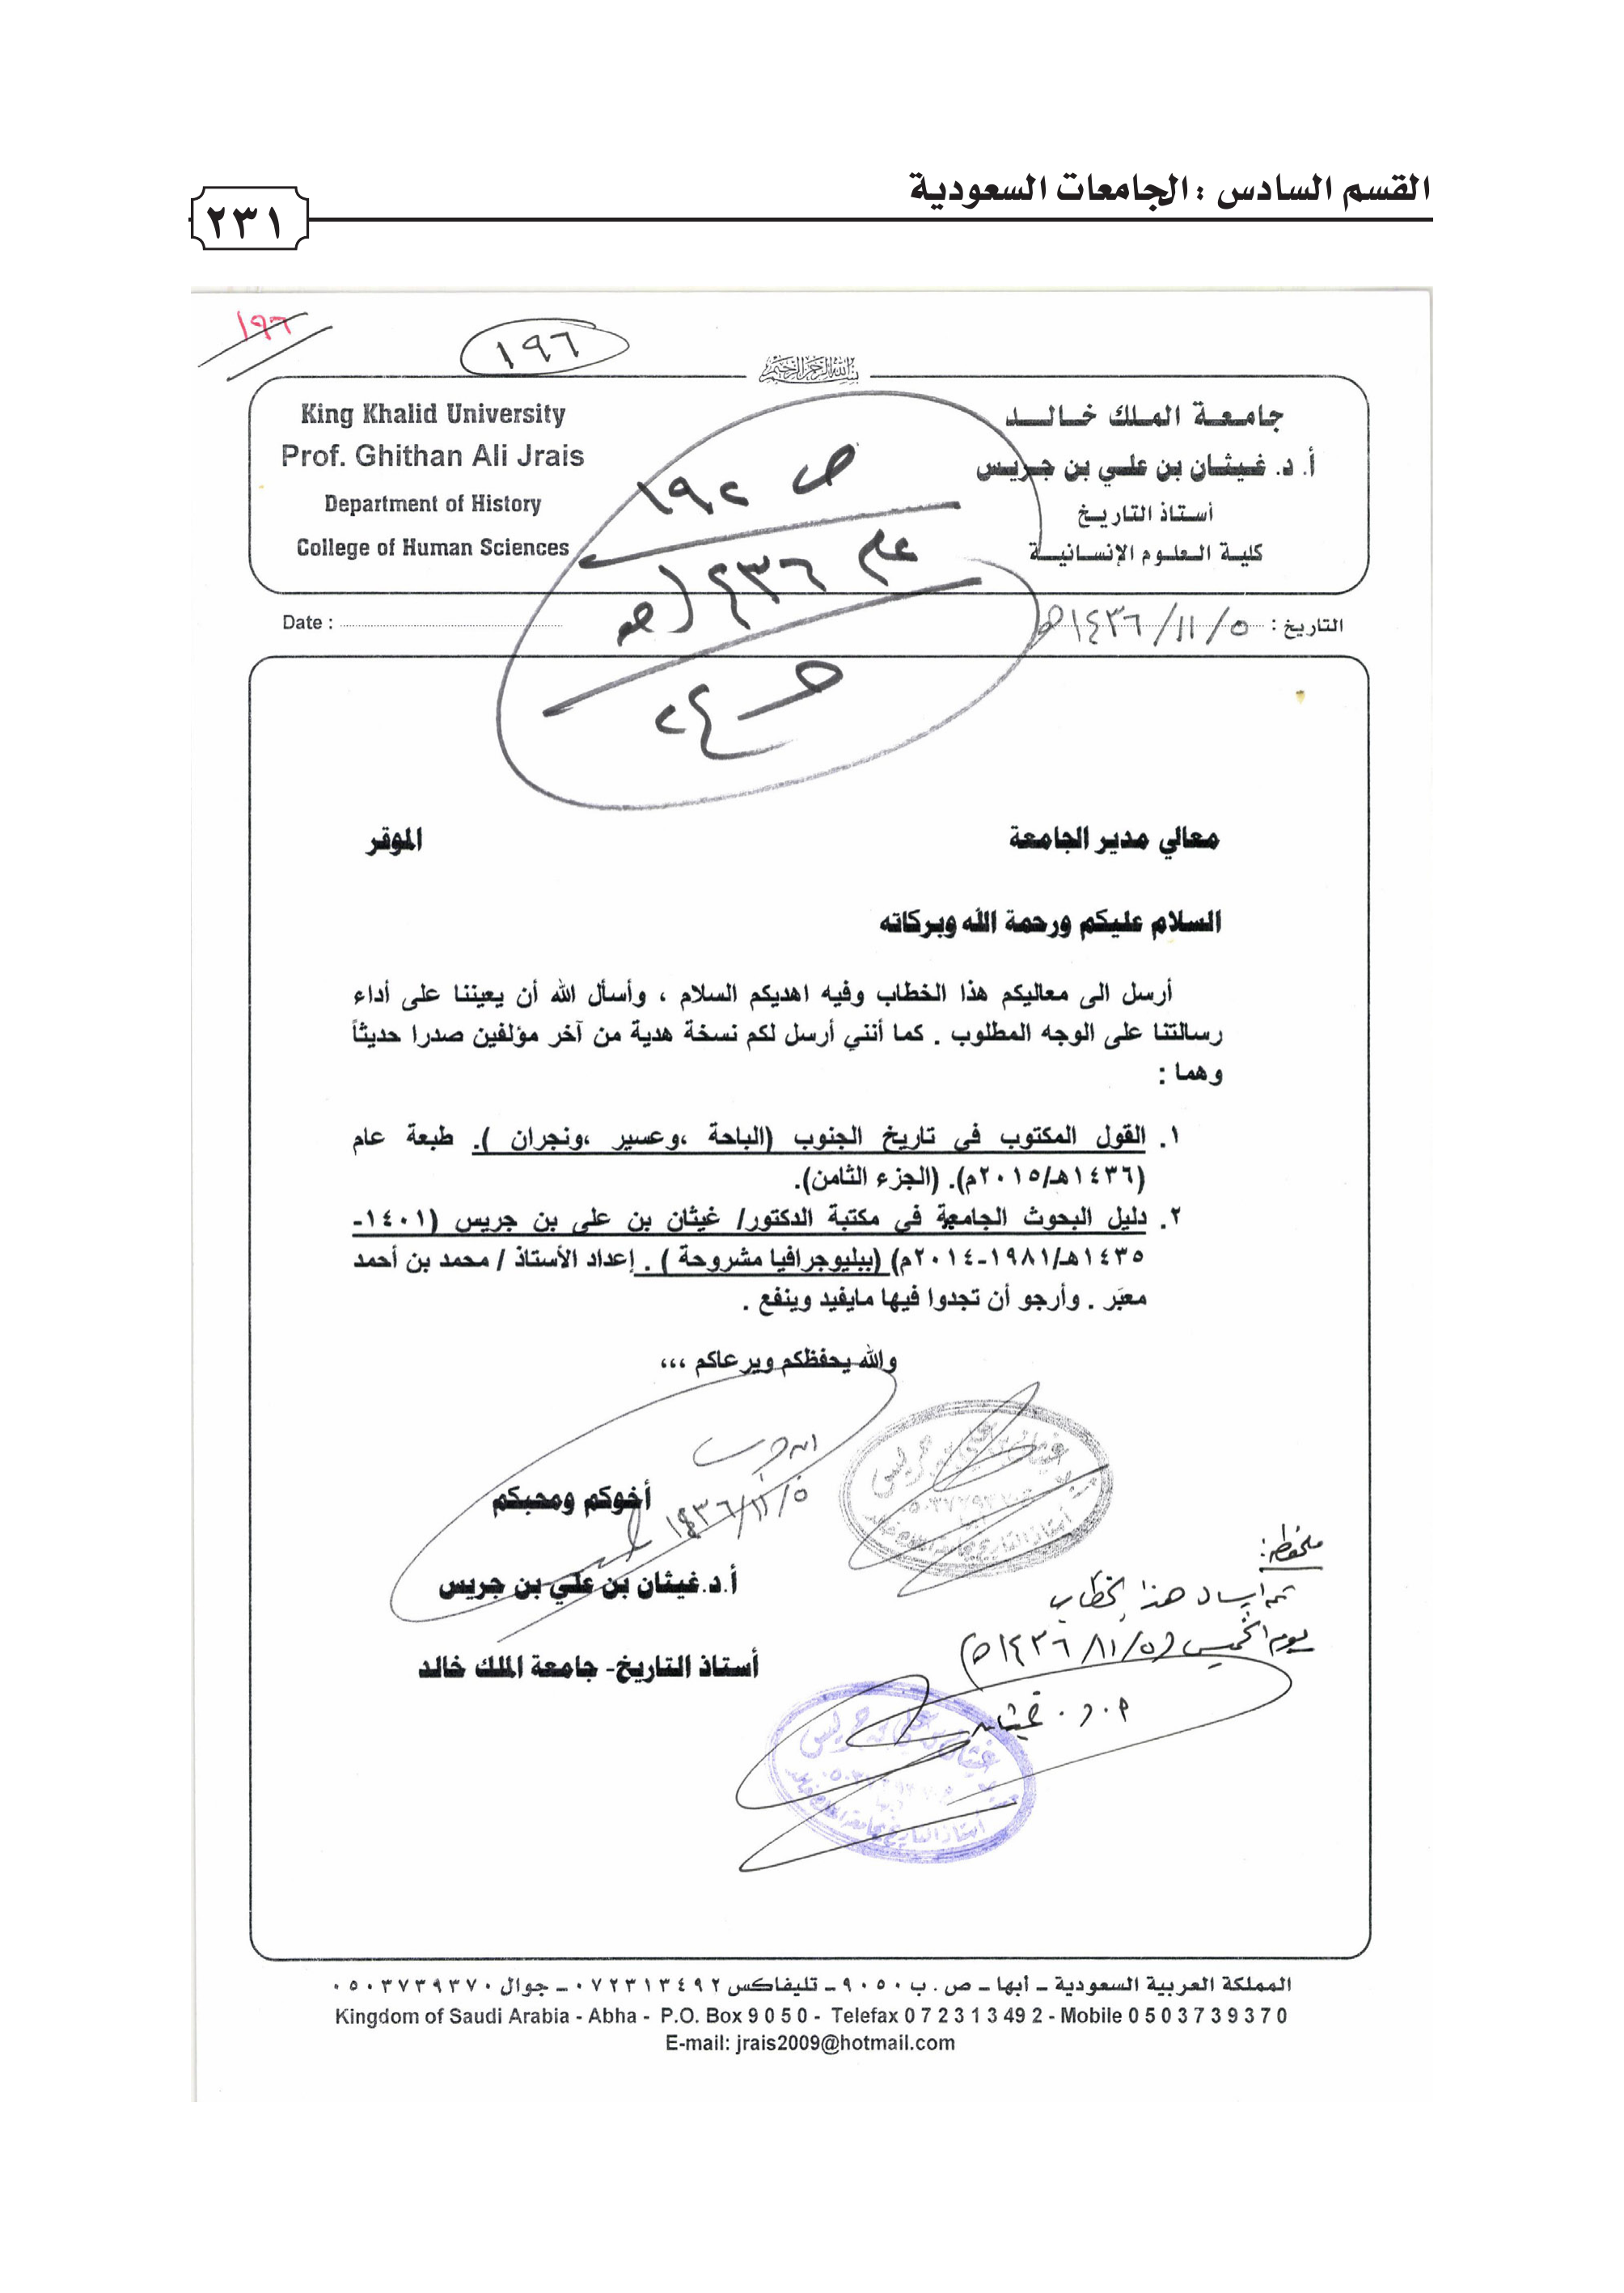 القسم السادس : الجامعات السعودية
٢٣١
١٩٦
١٩٦
بسم الله الرحمن الرحيم
جامعة الملك خالد
أ. د. غيثان بن علي بن جريس
أستاذ التاريخ
كلية العلوم الإنسانية
King Khalid University
Prof. Ghithan Ali Jrais
Department of History
College of Human Sciences
ص ١٩٢
عام ١٤٣٦هـ
التاريخ : ٥/ ١١/ ١٤٣٦هـ
Date :
معالي مدير الجامعة الموقر
السلام عليكم ورحمة الله وبركاته
أرسل الى معاليكم هذا الخطاب وفيه اهديكم السلام ، وأسأل الله أن يعيننا على أداء
رسالتنا على الوجه المطلوب . كما أنني أرسل لكم نسخة هدية من آخر مؤلفين صدرا حديثاً
وهما :
١. القول المكتوب في تاريخ الجنوب (الباحة ،وعسير ،ونجران ). طبعة عام
(١٤٣٦هـ/٢٠١٥م). (الجزء الثامن).
٢. دليل البحوث الجامعية في مكتبة الدكتور/ غيثان بن علي بن جريس (١٤٠١-
١٤٣٥هـ/١٩٨١-٢٠١٤م) (ببليوجرافيا مشروحة ) . إعداد الأستاذ / محمد بن أحمد
معبَر . وأرجو أن تجدوا فيها مايفيد وينفع .
والله يحفظكم ويرعاكم ،،،
أخوكم ومحبكم
٥/ ١١/ ١٤٣٦
أ.د.غيثان بن علي بن جريس
أستاذ التاريخ- جامعة الملك خالد
ملحوظة:
تم إرسال هذا الخطاب
يوم الخميس (٥/ ١١/ ١٤٣٦هـ)
أ.د. غيثان
المملكة العربية السعودية ـ أبها ـ ص . ب ٩٠٥٠ ـ تليفاكس ٠٧٢٣١٣٤٩٢ ـ جوال ٠٥٠٣٧٣٩٣٧٠
Kingdom of Saudi Arabia - Abha - P.O. Box 9 0 5 0 - Telefax 0 7 2 3 1 3 4 9 2 - Mobile 0 5 0 3 7 3 9 3 7 0
E-mail: jrais2009@hotmail.com